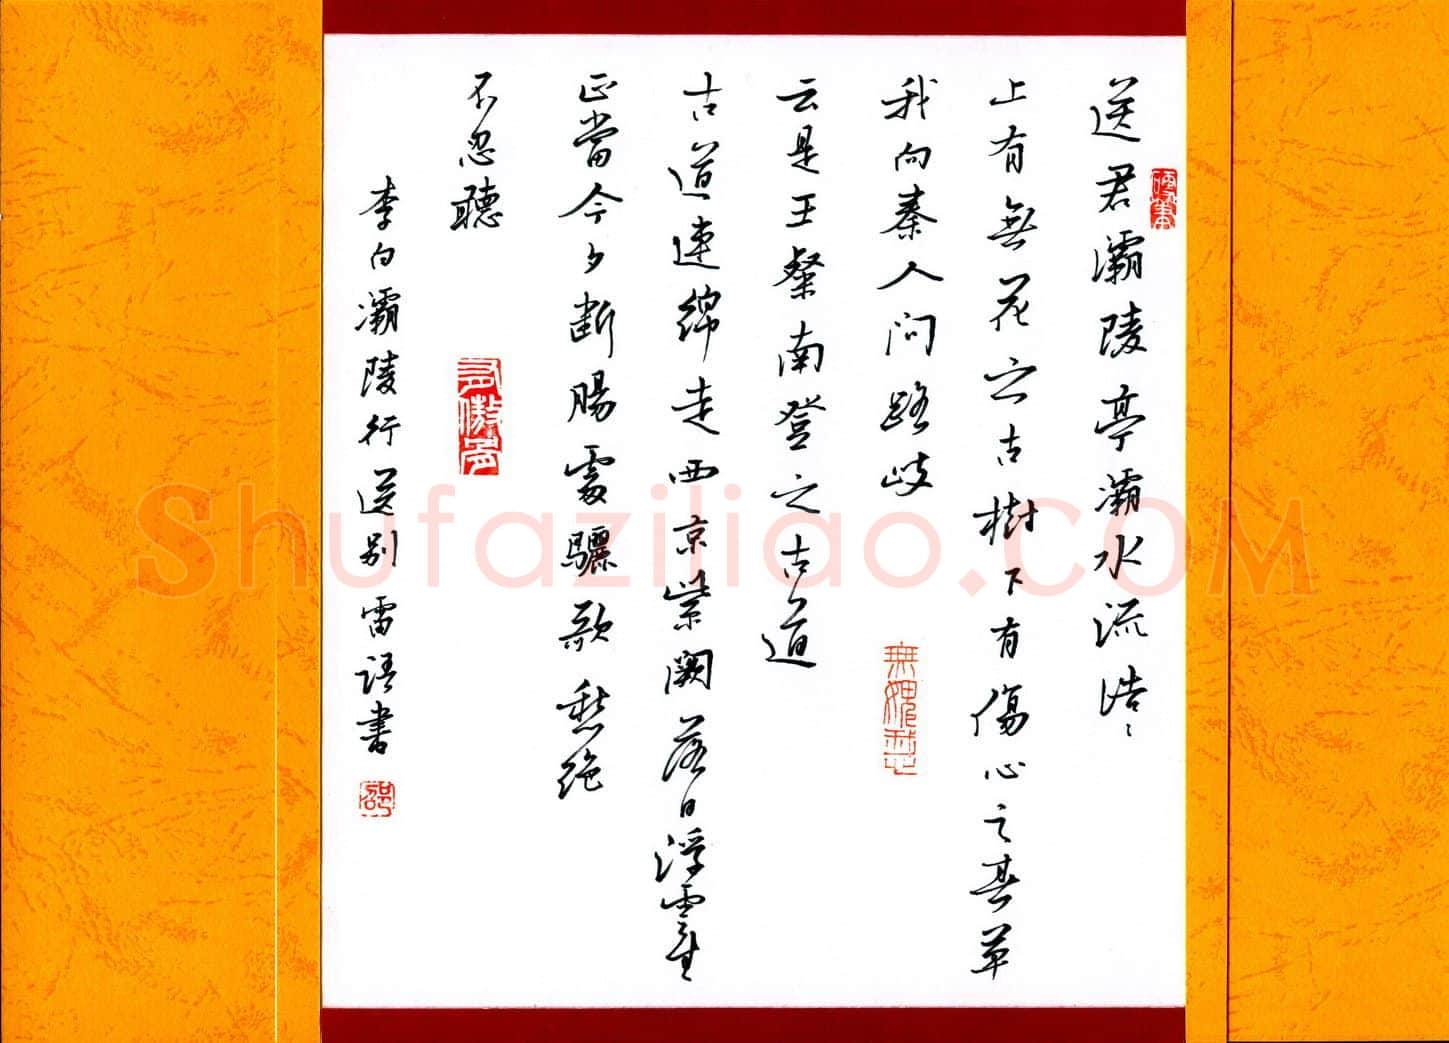 送君灞陵亭灞水流浩〻
上有無花之古樹下有傷心之春草
我向秦人問路岐
云是王粲南登之古道
古道連綿走西京紫闕落日浮雲生
正當今夕斷腸處驪歌愁絕
不忍聽
李白灞陵行送别 雷語書
Shufaziliao.COM